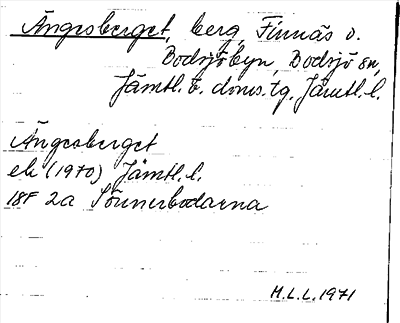 Ängesberget, berg, Finnäs o.
Bodsjöbyn, Bodsjö sn,
Jämtl. ö. doms. tg, Jämtl. l.
Ängesberget
ek (1970) Jämtl. l.
18F 2a Sönnerbodarna
M.L.L. 1971